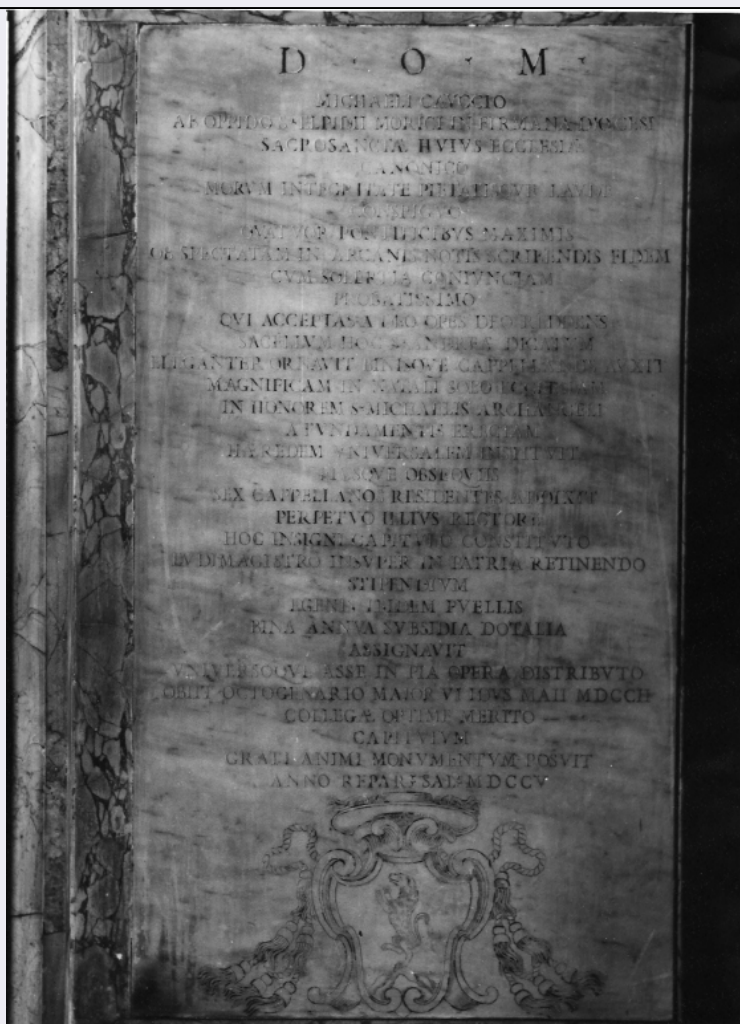 D · O · M ·
MICHAELI
AB OPPIDO S · ELPIDII MORICI IN FIRMANA DIOCESI
SACROSANCTÆ HVIVS ECCLESIÆ
CANONICO
MORVM INTEGRITATE LAVDE
CONSPICVO
QVATVOR PONTIFICIBVS MAXIMIS
OB SPECTATAM IN ARCANIS NOTIS SCRIBENDIS FIDEM
CVM SOLERTIA CONIVNCTAM
PROBATISSIMO
QVI ACCEPTAS A DEO OPES DEO REDDENS
SACELLVM HOC S · ANDREÆ DICATVM
ELEGANTER ORNAVIT
MAGNIFICAM IN NATALI SOLO
IN HONOREM S · MICHAELIS ARCHANGELI
A FVNDAMENTIS ERECTAM
HÆREDEM VNIVERSALEM INSTITVIT
OBSEQVIIS
SEX CAPPELLANOS RESIDENTES ADDIXIT
PERPETVO ILLIVS RECTORE
HOC INSIGNI CAPITVLO CONSTITVTO
LVDIMAGISTRO INSVPER IN PATRIA RETINENDO
STIPENDIVM
EGENIS ITIDEM PVELLIS
BINA ANNVA SVBSIDIA DOTALIA
ASSIGNAVIT
VNIVERSOQVE ASSE IN PIA OPERA DISTRIBVTO
OBIIT OCTOGENARIO MAIOR VI IDVS MAII MDCCII
COLLEGÆ OPTIME MERITO
CAPITVLVM
GRATI ANIMI MONVMENTVM POSVIT
ANNO REPAR · SAL · MDCCV